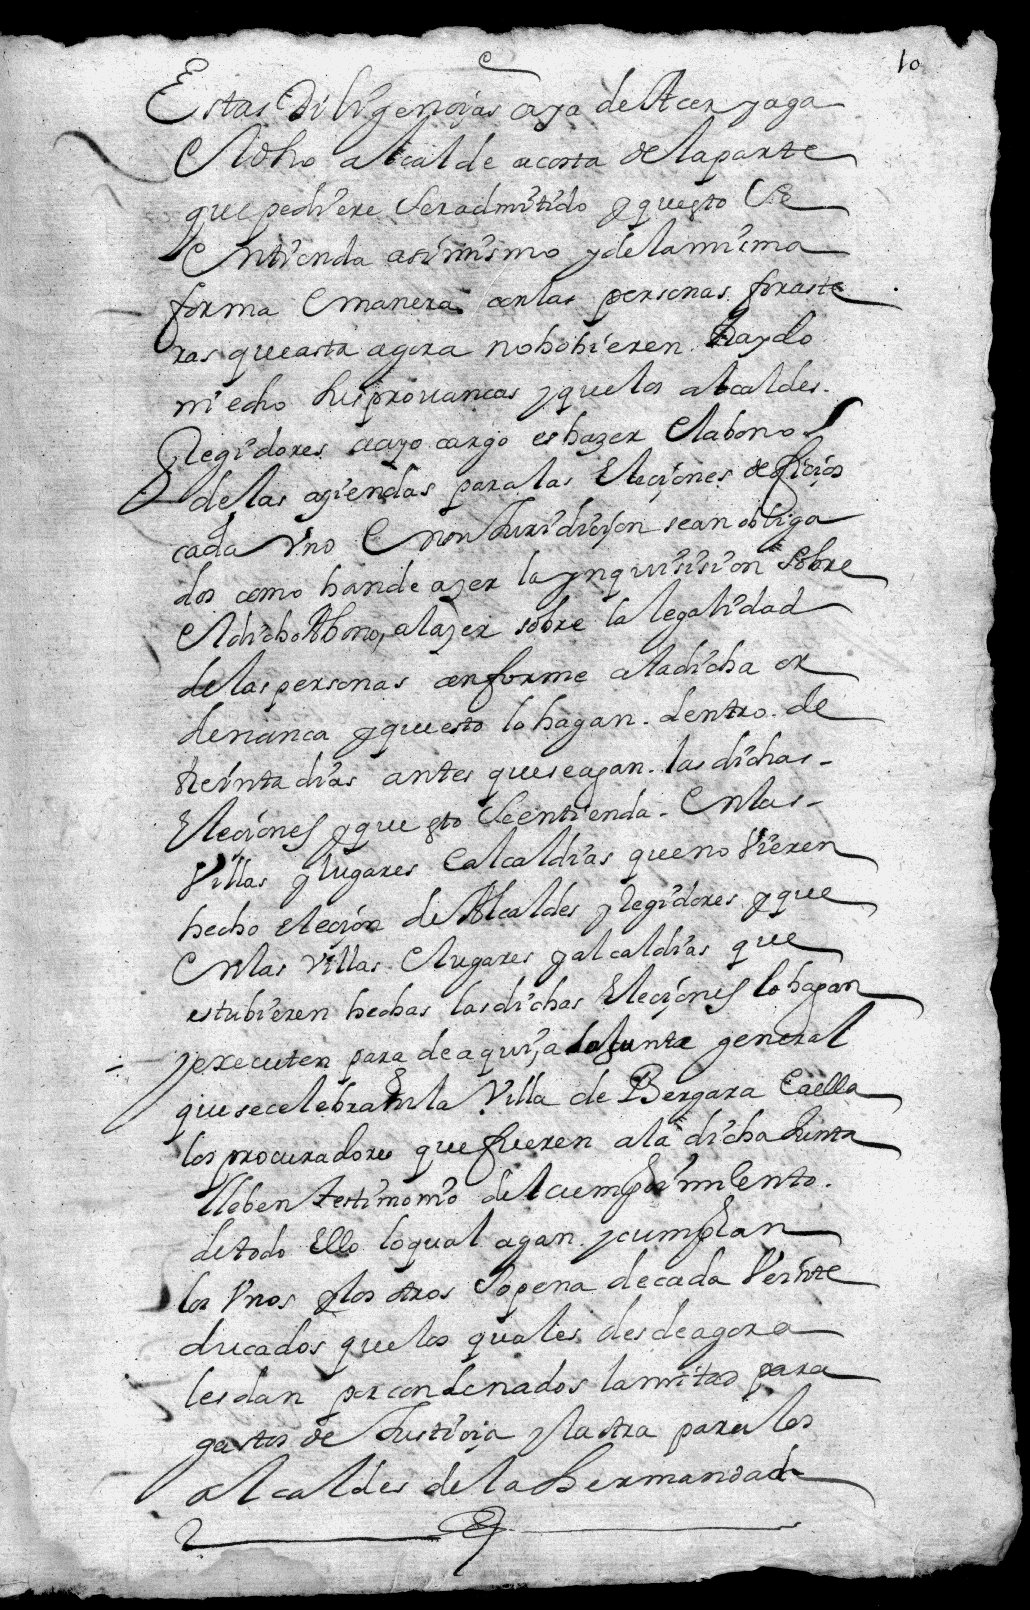 10
Estas Diligençias aya de Acer y aga
El dho alcalde a costa de la parte
que pediere ser admitido y questo se
Entienda asimismo y de la misma
forma E manera con las personas foraste
ras que asta agora no hobieren traydo
ni echo sus provancas y que los alcaldes
Regidores a cuyo cargo es hazer El abono
de las aziendas para las Eleciones de ofiçios
cada Vno En su Juridiçion sean obliga
dos como han de azer la ynquisision sobre
El dicho Abono, a lazer sobre la legalidad
de las personas conforme a la dicha or
denanca y questo lo hagan dentro de
treinta dias antes que se agan las dichas
Eleciones y que esto se entienda En las
Villas y lugares E alcaldias que no Vieren
hecho elecion de Alcaldes y Regidores y que
En las Villas E lugares y alcaldias que
estubieren hechas las dichas Eleciones lo hagan
y executen para de aqui a la Junta general
que se celebra En la Villa de Bergara E a ella
los procuradores que fueren a la dicha Junta
lleben testimonio del cumplimiento
de todo Ello lo qual agan y cumplan
los Vnos y los otros so pena de cada Veinte
ducados que los quales desde agora
les dan por condenados la mitad para
gastos de Justicia y la otra para los
alcaldes de la hermandad